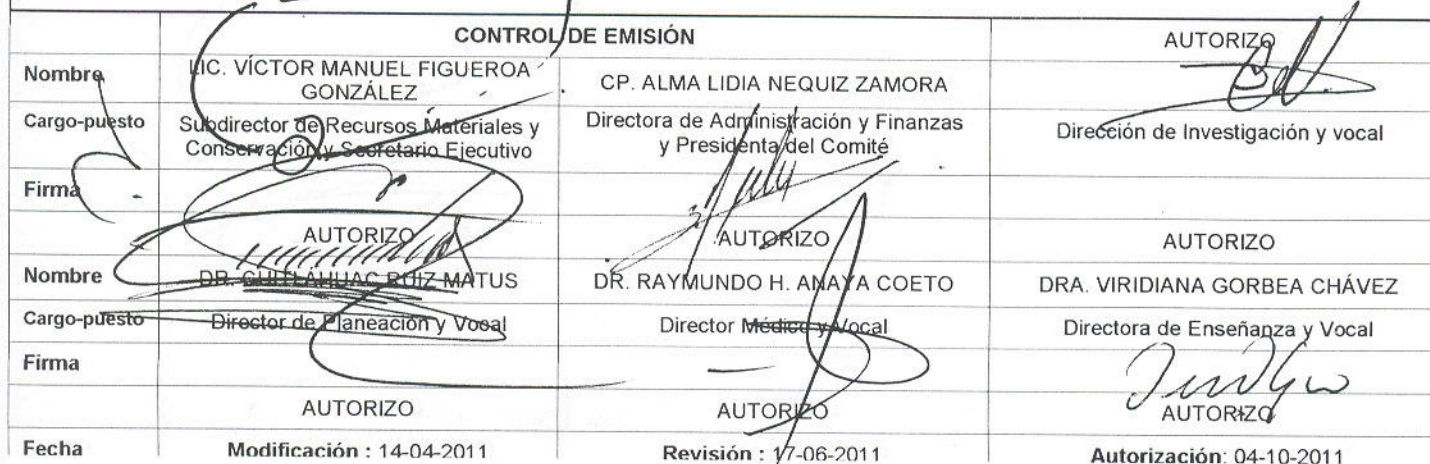 CONTROL DE EMISIÓN
AUTORIZO
Nombre
LIC. VÍCTOR MANUEL FIGUEROA GONZÁLEZ
CP. ALMA LIDIA NEQUIZ ZAMORA
Cargo-puesto
Subdirector de Recursos Materiales y
Conservación y Secretario Ejecutivo
Directora de Administración y Finanzas
y Presidenta del Comité
Dirección de Investigación y vocal
Firma
AUTORIZO
AUTORIZO
AUTORIZO
Nombre
DR. CUITLÁHUAC RUIZ MATUS
DR. RAYMUNDO H. ANAYA COETO
DRA. VIRIDIANA GORBEA CHÁVEZ
Cargo-puesto
Director de Planeación y Vocal
Director Médico y Vocal
Directora de Enseñanza y Vocal
Firma
AUTORIZO
AUTORIZO
AUTORIZO
Fecha
Modificación : 14-04-2011
Revisión : 17-06-2011
Autorización: 04-10-2011